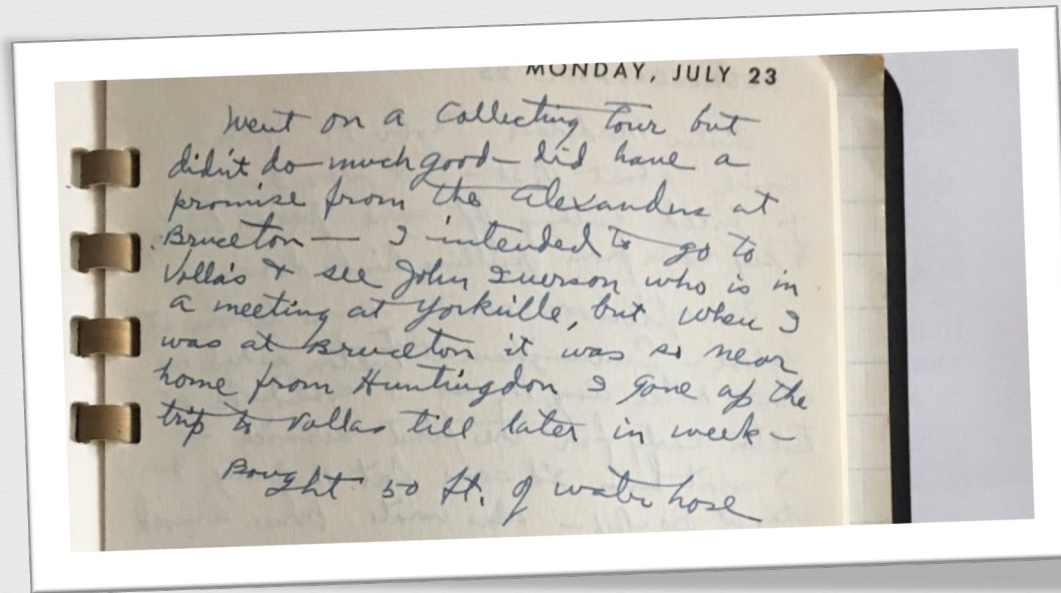 MONDAY, JULY 23
Went on a Collecting Tour but
didn't do much good— did have a
promise from the Alexanders at
Bruceton — I intended to go to
Volla's & see John Iverson who is in
a meeting at Yorkville, but when I
was at Bruceton it was so near
home from Huntingdon I gave up the
trip to Vollas till later in week—
Bought 50 ft. of water hose